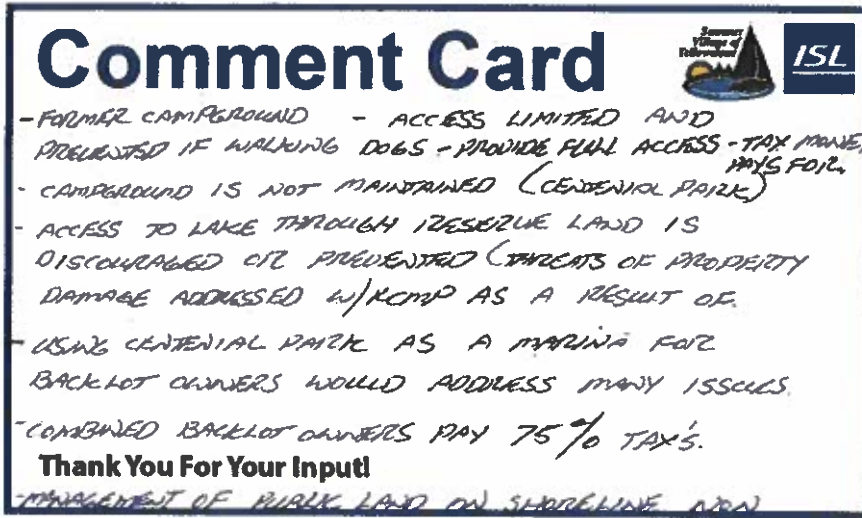 Comment Card
Summer
Village of
ISL
- FORMER CAMPGROUND - ACCESS LIMITED AND
PREVENTED IF WALKING DOGS - PROVIDE FULL ACCESS - TAX MONEY
PAYS FOR.
- CAMPGROUND IS NOT MAINTAINED (CENTENIAL PARK)
- ACCESS TO LAKE THROUGH RESERVE LAND IS
DISCOURAGED OR PREVENTED (THREATS OF PROPERTY
DAMAGE ADDRESSED W/RCMP AS A RESULT OF.
- USING CENTENIAL PARK AS A MARINA FOR
BACKLOT OWNERS WOULD ADDRESS MANY ISSUES.
- COMBINED BACKLOT OWNERS PAY 75% TAX'S.
Thank You For Your Input!
- MANAGEMENT OF PUBLIC LAND ON SHORELINE NON